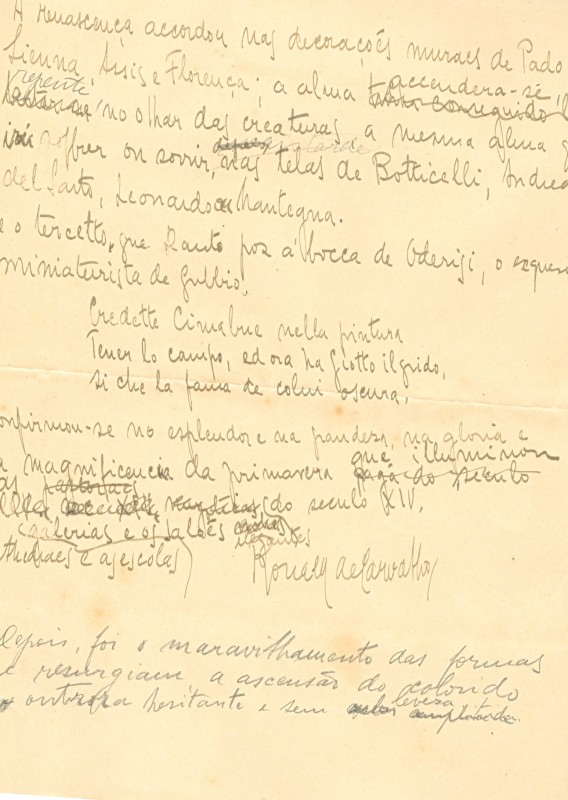 A renascença accordou nas decorações muraes de Pado
Sienna, Assis e Florença; a alma accendera-se,
repente
no olhar das creaturas, a mesma alma q
soffrer ou sorrir, nas telas de Botticelli, Andrea
del Sarto, Leonardo ou Mantegna.
e o tercetto, que Dante poz á bocca de Oderisi, o exquesi
miniaturista de Gubbio,
Credette Cimabue nella pintura
Tener lo campo, ed ora ha Giotto il grido,
si che la fama de colui oscura,
onfirmou-se no esplendor e na grandeza, na gloria e
a magnificencia da primavera que illuminou
as
do seculo XIV.
galerias e os salões
elegantes
e as escolas
Ronald de Carvalho
Depois, foi o maravilhamento das formas
e resurgiam a ascensão do colorido
outrora hesitante e sem leveza